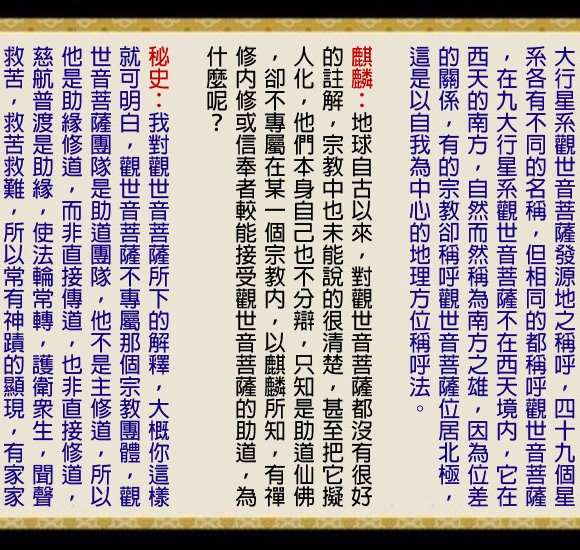 大行星系觀世音菩薩發源地之稱呼，四十九個星
系各有不同的名稱，但相同的都稱呼觀世音菩薩
，在九大行星系觀世音菩薩不在西天境內，它在
西天的南方，自然而然稱為南方之雄，因為位差
的關係，有的宗教卻稱呼觀世音菩薩位居北極，
這是以自我為中心的地理方位稱呼法。
麒麟：地球自古以來，對觀世音菩薩都沒有很好
的註解，宗教中也未能說的很清楚，甚至把它擬
人化，他們本身自己也不分辯，只知是助道仙佛
，卻不專屬在某一個宗教內，以麒麟所知，有禪
修內修或信奉者較能接受觀世音菩薩的助道，為
什麼呢？
秘史：我對觀世音菩薩所下的解釋，大概你這樣
就可明白，觀世音菩薩不專屬那個宗教團體，觀
世音菩薩團隊是助道團隊，他不是主修道，所以
他是助緣修道，而非直接傳道，也非直接修道，
慈航普渡是助緣，使法輪常轉，護衛眾生，聞聲
救苦，救苦救難，所以常有神蹟的顯現，有家家